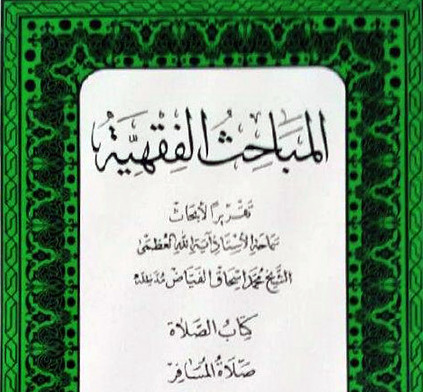 المباحث الفقهية
تقريرًا لأبحاث
سماحة الأستاذ آية الله العظمى
الشيخ محمد إسحاق الفياض مد ظله
كتاب الصلاة
صلاة المسافر